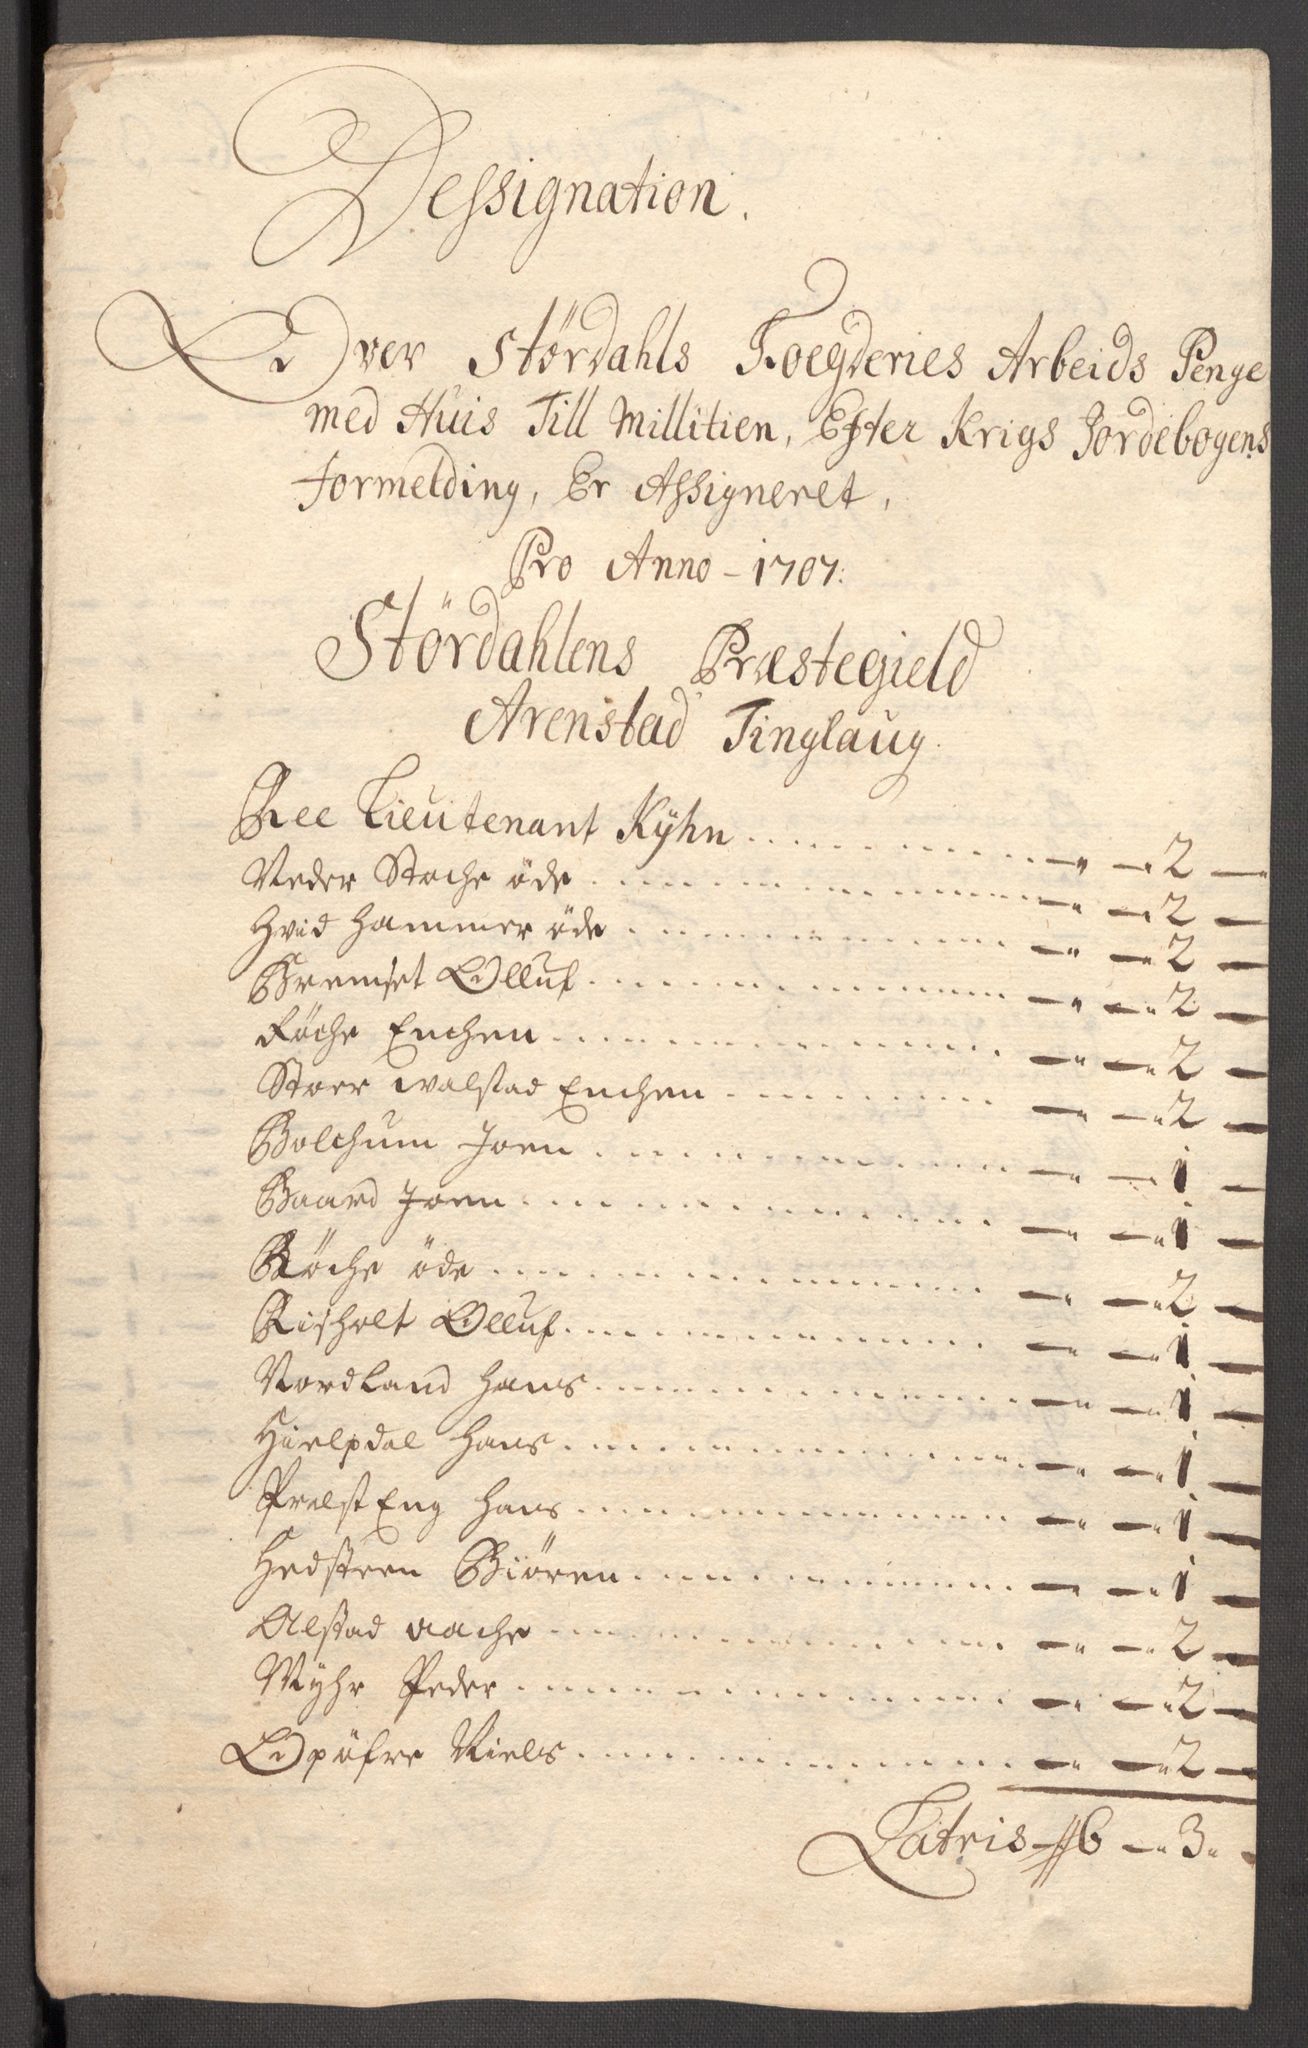 Dessignation.
Over Størdahls Foegderies Arbeids Penge
med Huis Till Millitien, Efter Krigs Jordebogens
Formelding, Er Assigneret,
Pro Anno - 1707:
Størdahlens Præstegield
Arenstad Tinglaug.
Ree Lieutenant Kÿhn - 2 -
Neder Stoche öde - 2 -
Hvid Hammer öde - 2 -
Bremset Olluf - 2 -
Röche Enchen - 2 -
Stoer Walstad Enchen - 2 -
Bolchum Joen - 1 -
Baard Joen - 1 -
Röche öde - 2 -
Risholt Olluf - 1 -
Nordland Hans - 1 -
Hielpdal Hans - 1 -
Prest Eng Hans - 1 -
Hedsteen Biören - 1 -
Alstad Aache - 2 -
Mÿhr Peder - 2 -
Opöfre Niels - 2 -
Latris - 6 - 3 -